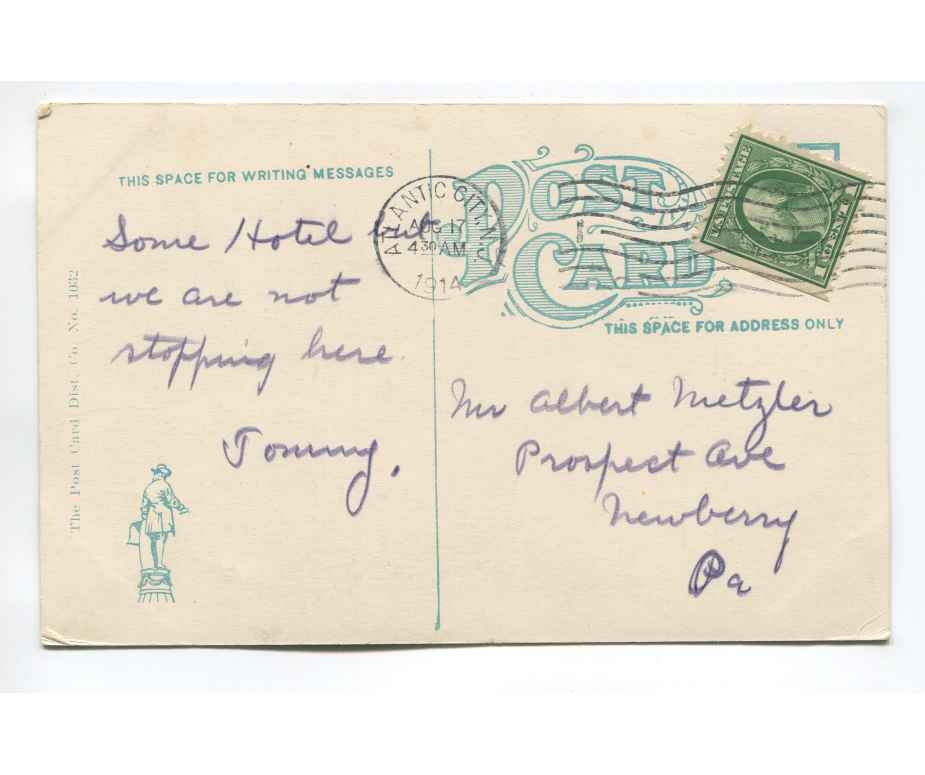 THIS SPACE FOR WRITING MESSAGES
Some Hotel but
we are not
stopping here.
Tommy.
The Post Card Dist. Co. No. 1032
ATLANTIC CITY, N.J.
AUG 17
4 30 AM
1914
POST
CARD
THIS SPACE FOR ADDRESS ONLY
Mr Albert Metzler
Prospect Ave
Newberry
Pa